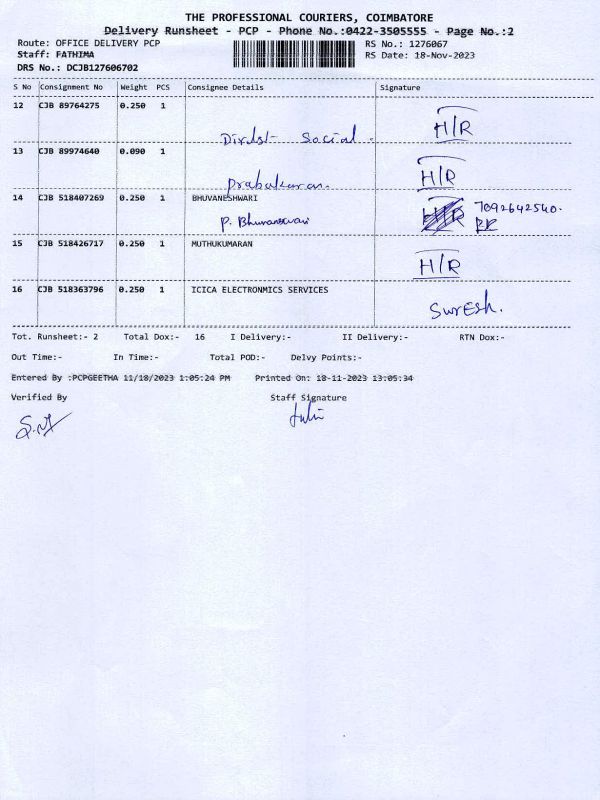 THE PROFESSIONAL COURIERS, COIMBATORE
Delivery Runsheet - PCP - Phone No.:0422-3505555 - Page No.:2
Route: OFFICE DELIVERY PCP RS No.: 1276067
Staff: FATHIMA RS Date: 18-Nov-2023
DRS No.: DCJB127606702
S No Consignment No Weight PCS Consignee Details Signature
12 CJB 89764275 0.250 1
Social H/R
13 CJB 89974640 0.090 1
Prabakaran. H/R
14 CJB 518407269 0.250 1 BHUVANESHWARI 7092642540.
P. Bhuvaneswari
15 CJB 518426717 0.250 1 MUTHUKUMARAN
H/R
16 CJB 518363796 0.250 1 ICICA ELECTRONMICS SERVICES
Suresh.
Tot. Runsheet:- 2 Total Dox:- 16 I Delivery:- II Delivery:- RTN Dox:-
Out Time:- In Time:- Total POD:- Delvy Points:-
Entered By :PCPGEETHA 11/18/2023 1:05:24 PM Printed On: 18-11-2023 13:05:34
Verified By Staff Signature